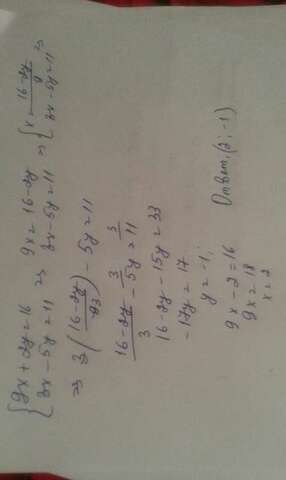 {9x+2y=16 => 9x=16-2y => {x=16-2y/9 =>
{3x-5y=11 3x-5y=11 {3x-5y=11
=> 3(16-2y/9) - 5y=11
16-2y/3 - 5y=11
16-2y-15y=33
-17y=17
y=-1;
9x-2=16
9x=18
x=2
Ответ: (2;-1)